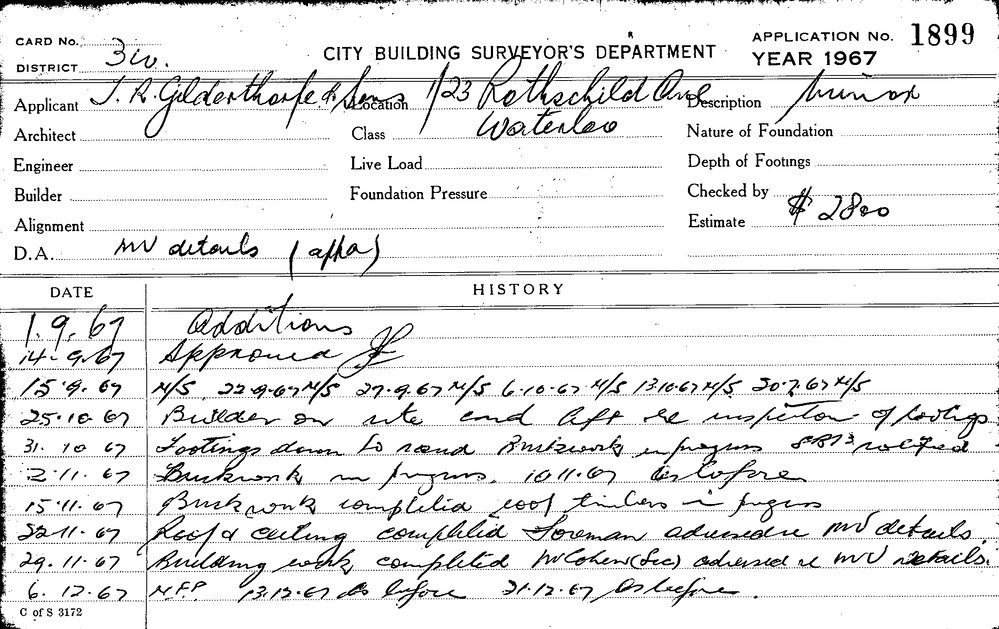 CARD No. CITY BUILDING SURVEYOR'S DEPARTMENT APPLICATION No. 1899
DISTRICT 3W. YEAR 1967
Applicant J. R. Gilderthorpe & Sons Location 1/23 Rothschild Ave Description minor
Architect Class Waterloo Nature of Foundation
Engineer Live Load Depth of Footings
Builder Foundation Pressure Checked by
Alignment Estimate $ 2800
D.A. MV details (appd)
DATE HISTORY
1.9.67 Additions
14.9.67 Approved
15.9.67 M/S 22.9.67 M/S 29.9.67 M/S 6.10.67 M/S 13.10.67 M/S 20.7.67 M/S
25.10.67 Builder on site and left re inspection of footings
31.10.67 Footings down to sand Brickwork in progress notified
2.11.67 Brickwork in progress. 10.11.67 As before
15.11.67 Brickwork completed roof timbers in progress
22.11.67 Roof & ceiling completed Foreman advised re MV details.
29.11.67 Building work completed Mr Cohen (Sec) advised re MV details.
6.12.67 N.F.P. 13.12.67 As before 21.12.67 As before.
C of S 3172